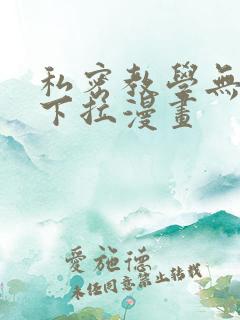 私密教學無
下拉漫畫
愛施德
未经同意禁止转载